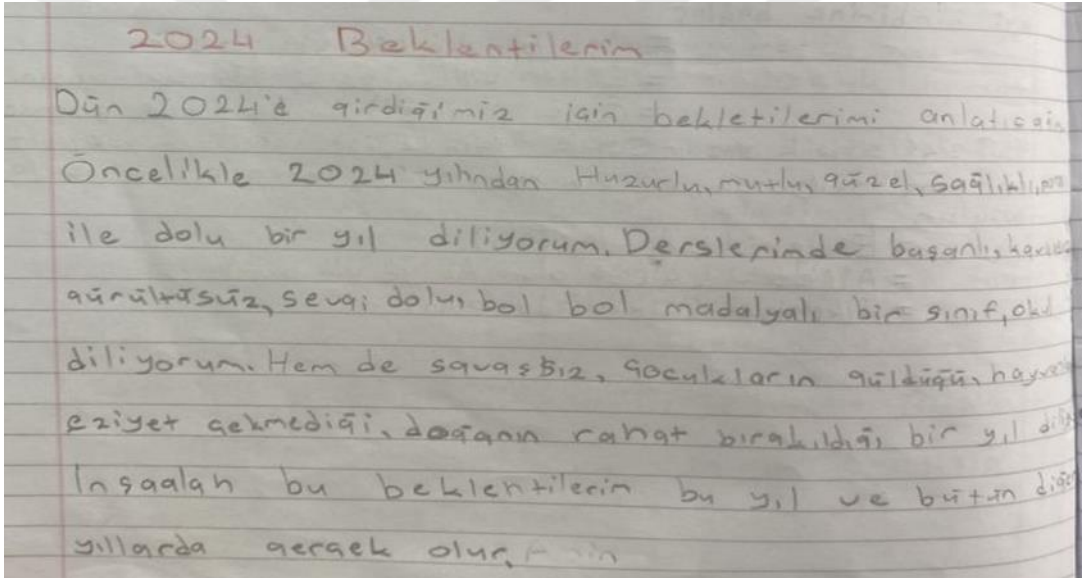 2024 Beklentilerim
Dün 2024'e girdiğimiz için bekletilerimi
Öncelikle 2024 yılından Huzurlu, mutlu, güzel, sağlıklı,
ile dolu bir yıl diliyorum. Derslerimde başarılı,
gürültüsüz, sevgi dolu, bol bol madalyalı bir sınıf,
diliyorum. Hem de savaşsız, çocukların güldüğü,
eziyet çekmediği, doğanın rahat bırakıldığı bir yıl
İnşaalah bu beklentilerim bu yıl ve bütün
yıllarda gerçek olur.